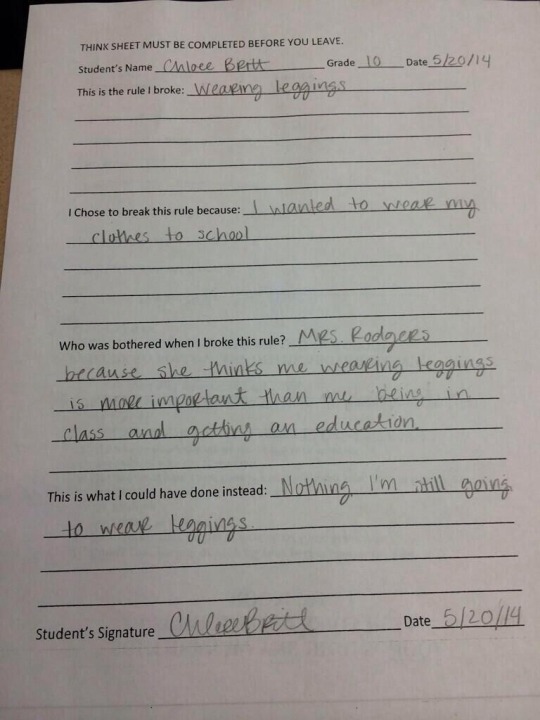 THINK SHEET MUST BE COMPLETED BEFORE YOU LEAVE.
Student's Name Chloee Britt Grade 10 Date 5/20/14
This is the rule I broke: Wearing leggings
I Chose to break this rule because: I wanted to wear my
clothes to school
Who was bothered when I broke this rule? Mrs. Rodgers
because she thinks me wearing leggings
is more important than me being in
class and getting an education.
This is what I could have done instead: Nothing I'm still going
to wear leggings.
Student's Signature Chloee Britt Date 5/20/14